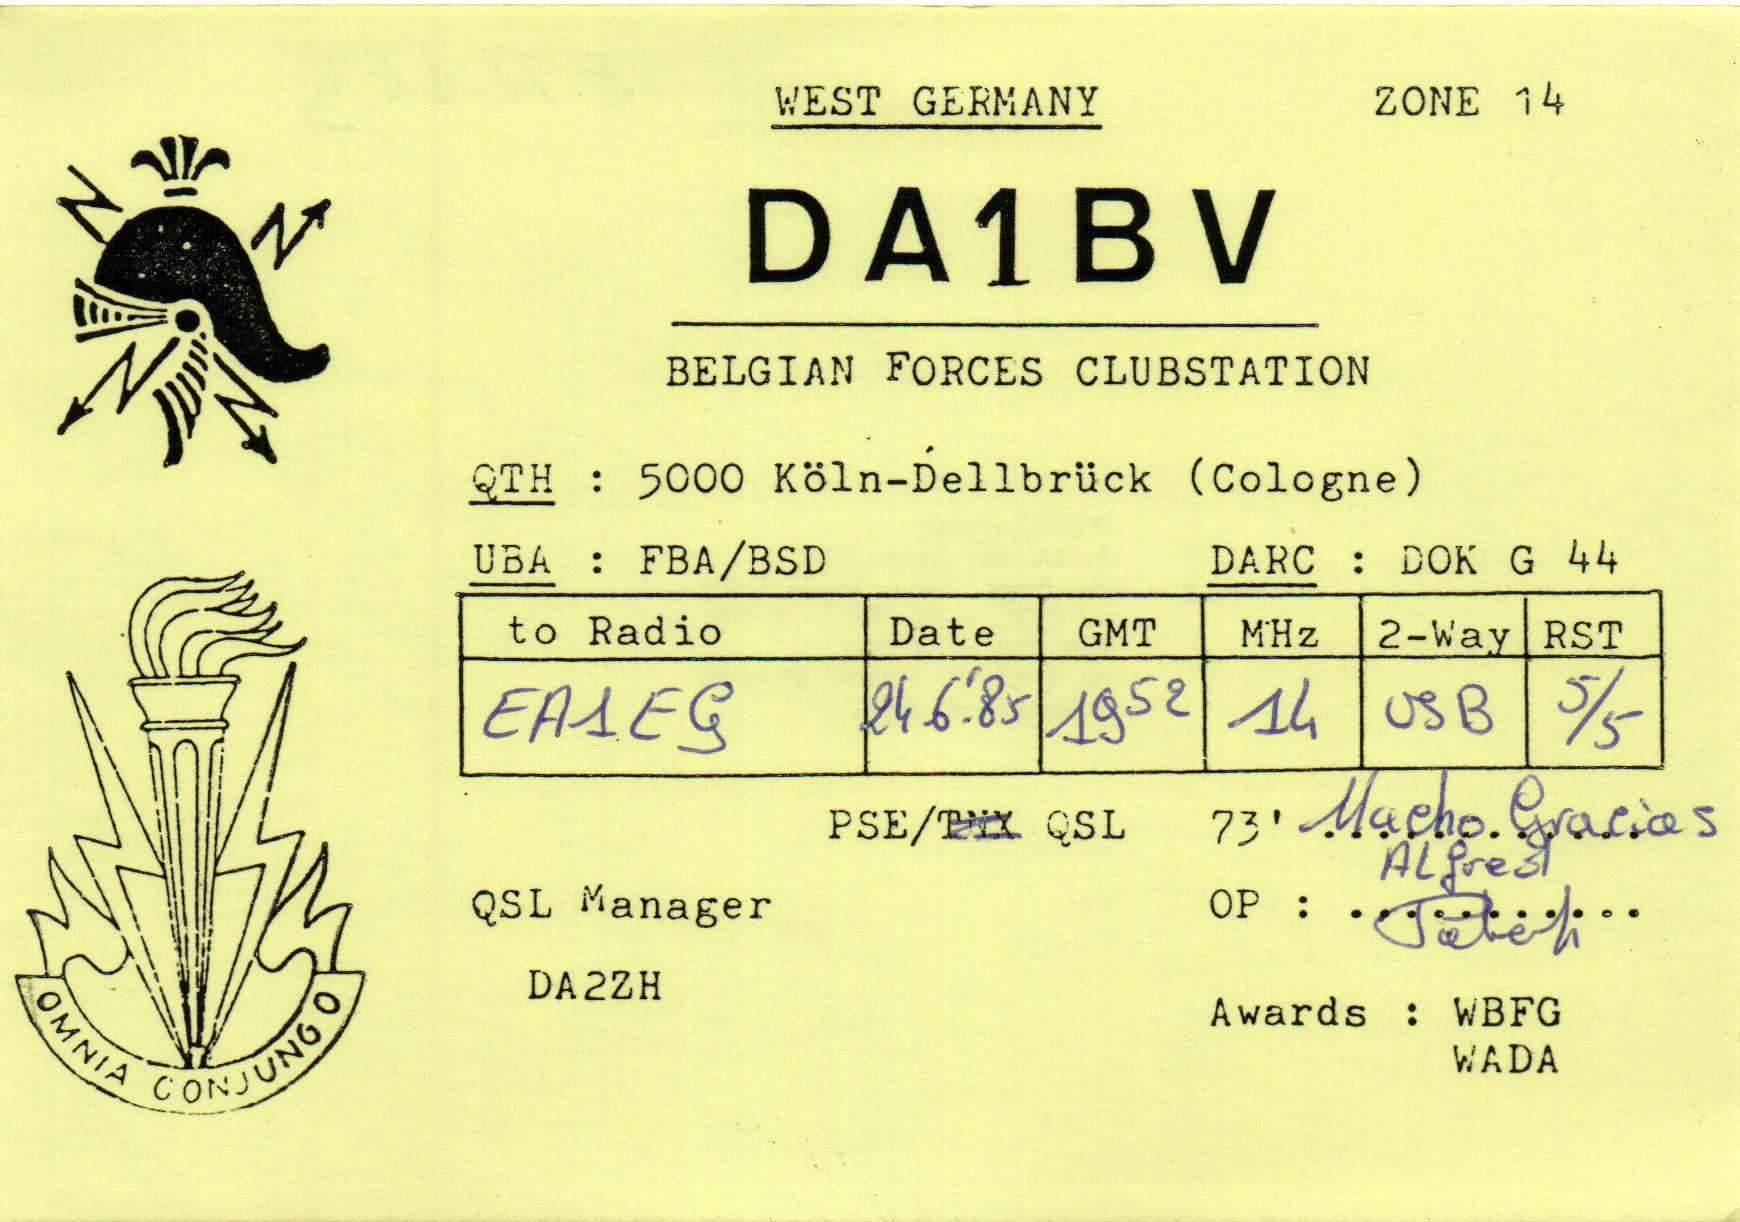 WEST GERMANY ZONE 14
DA1BV
BELGIAN FORCES CLUBSTATION
QTH : 5000 Köln-Dellbrück (Cologne)
UBA : FBA/BSD DARC : DOK G 44
to Radio Date GMT MHz 2-Way RST
EA1EG 24.6.'85 1952 14 USB 5/5
PSE/TNX QSL 73' Macho Gracias
Alfred
QSL Manager OP :
DA2ZH
Awards : WBFG
WADA
OMNIA CONJUNGO